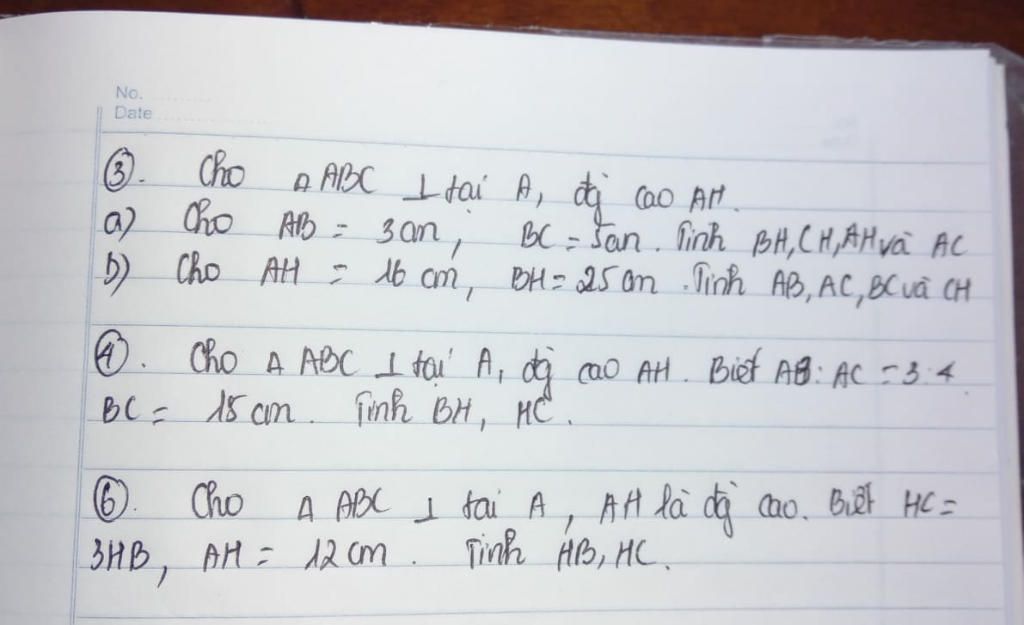 No.
Date
③. Cho Δ ABC ⊥ tại A, đg cao AH.
a) Cho AB = 3cm, BC = 5cm. Tính BH, CH, AH và AC
b) Cho AH = 16 cm, BH = 25 cm. Tính AB, AC, BC và CH
④. Cho Δ ABC ⊥ tại A, đg cao AH. Biết AB: AC = 3:4
BC = 15 cm. Tính BH, HC.
⑥. Cho Δ ABC ⊥ tại A, AH là đg cao. Biết HC =
3HB, AH = 12 cm. Tính HB, HC.